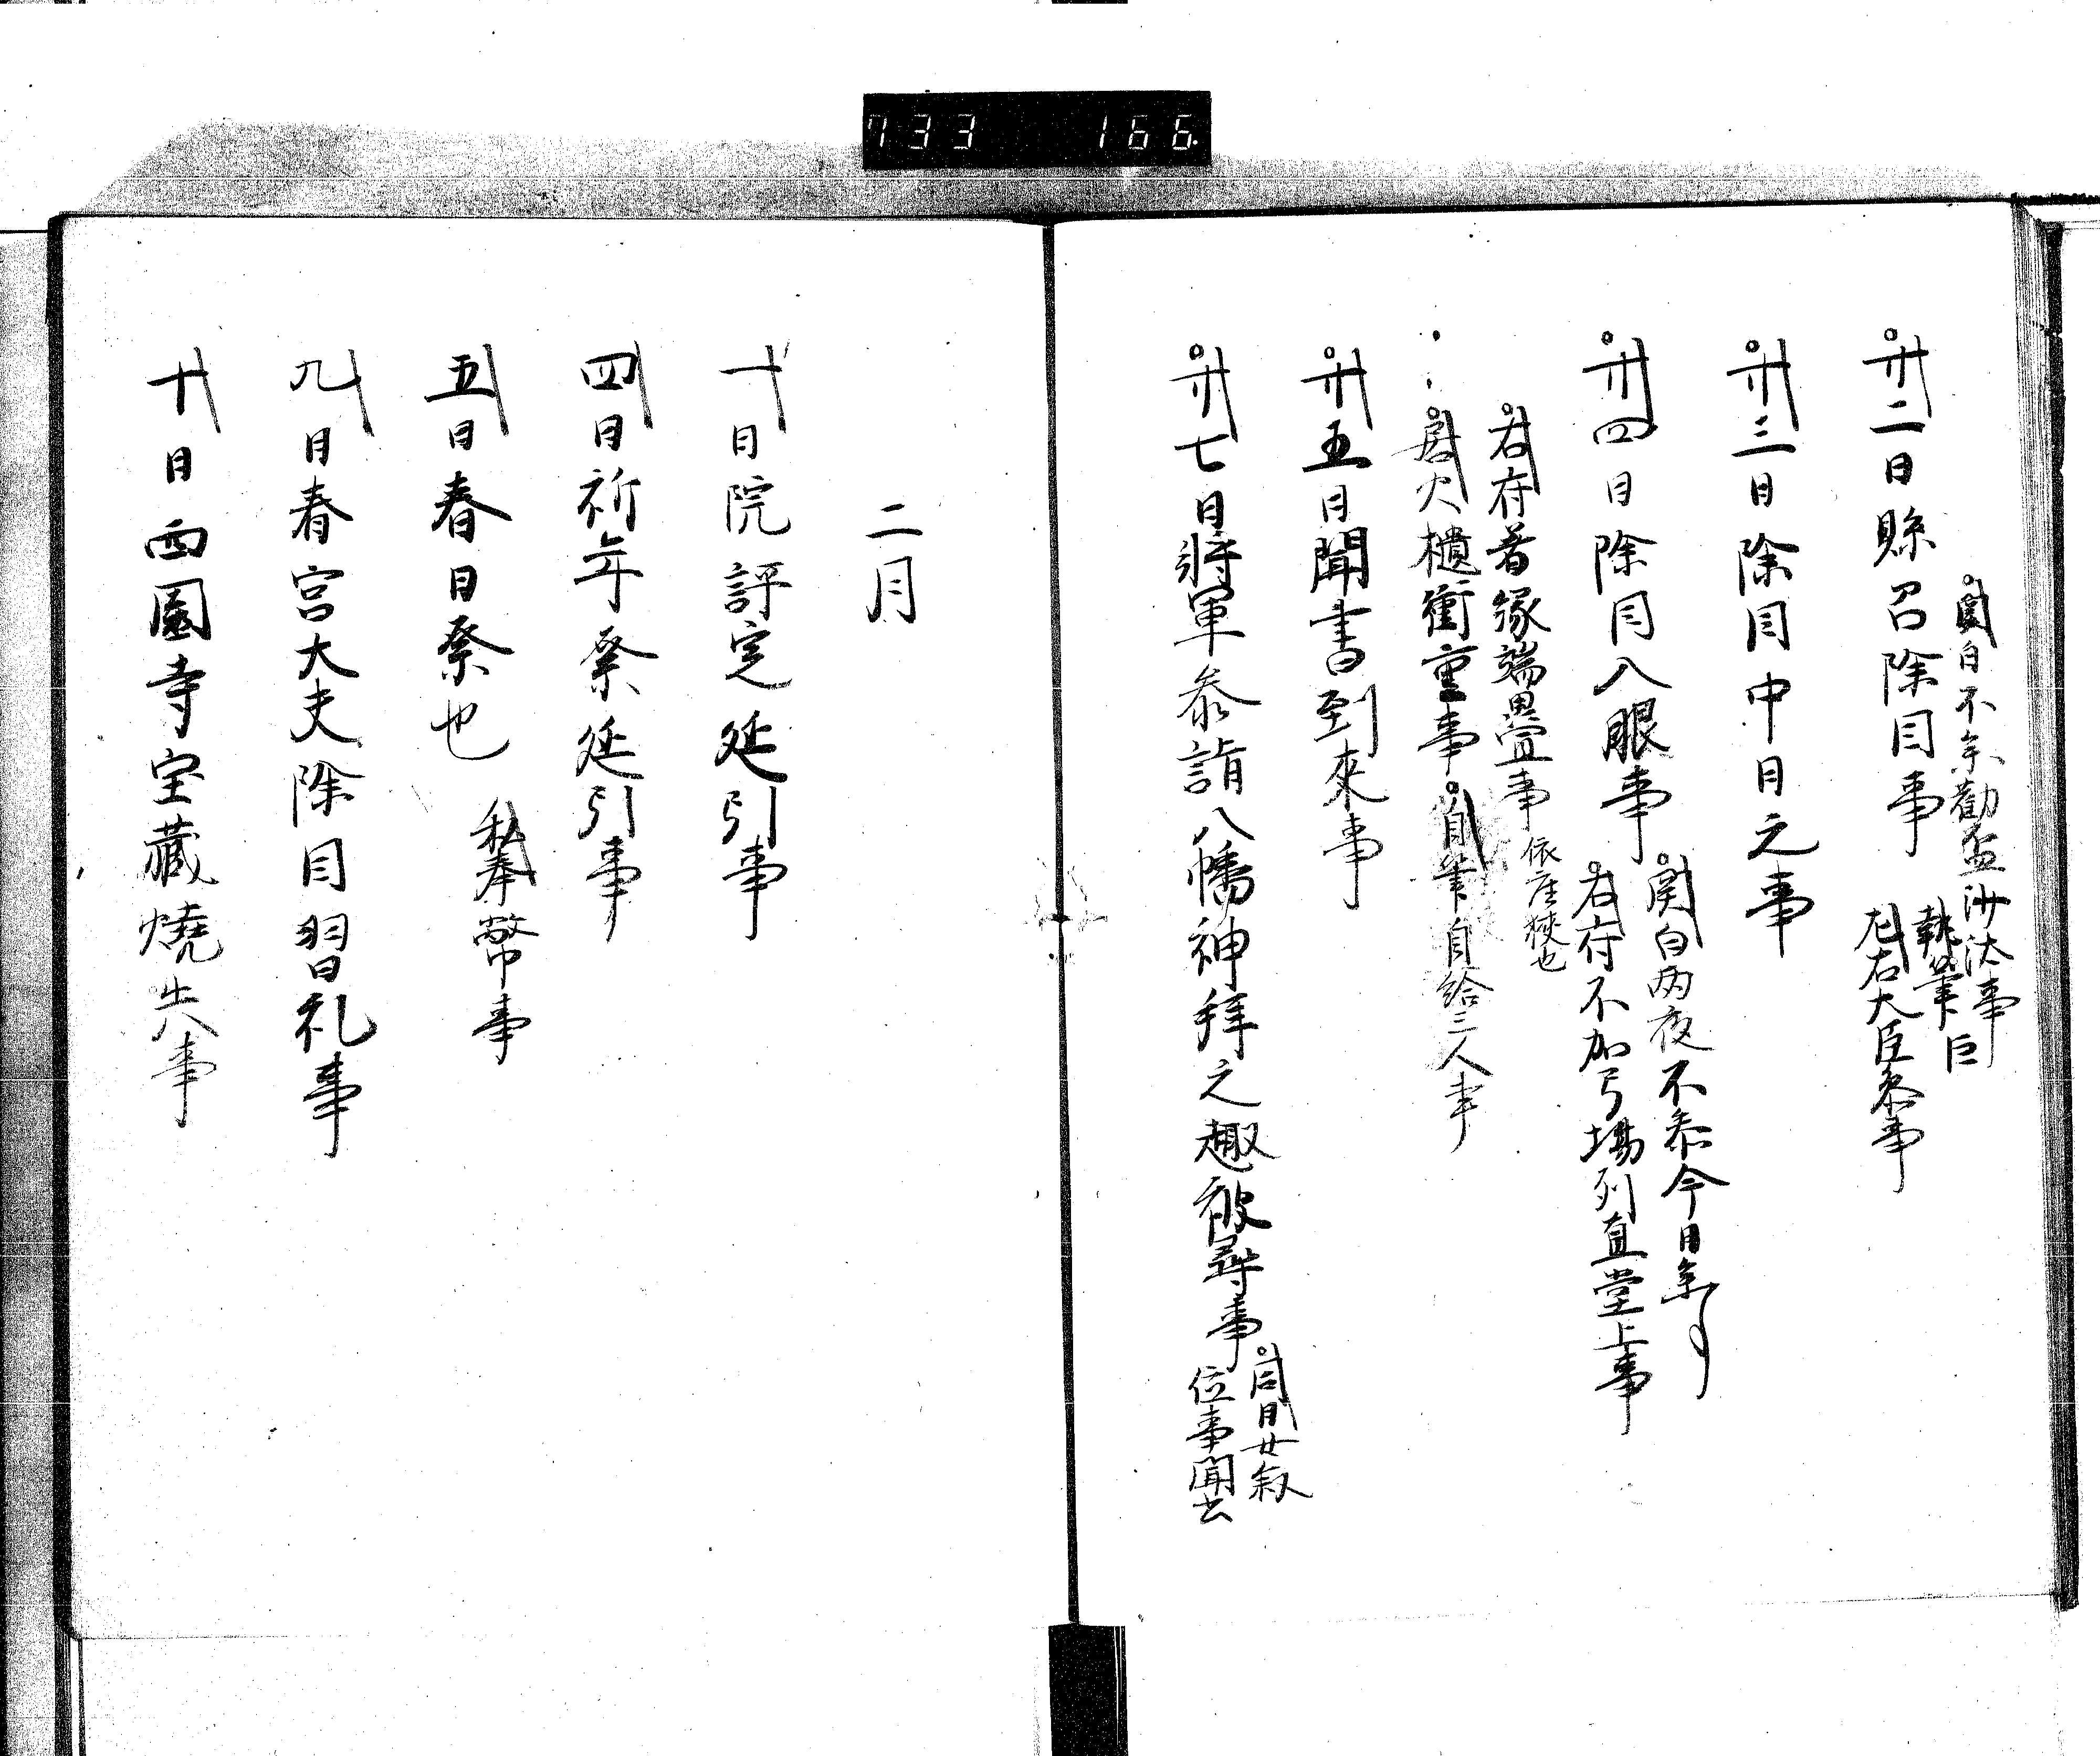 733 166
関白不参勧盃沙汰事
廿二日縣召除目事 執筆臣
尤右大臣参事
廿三日除目中日之事
廿四日除目入眼事 関白両夜不参今日参事
右府不加弓場列直堂上事
右府着縁端畳事 依座狭也
居火櫃衝重事 自筆自給三人事
廿五日聞書到來事
廿七日將軍参詣八幡神拜之趣被尋事 同日女叙
位事聞書
二月
一日院評定延引事
四日祈年祭延引事
五日春日祭也 私奉幣事
九日春宮大夫除目習礼事
十日西園寺宝蔵焼失事